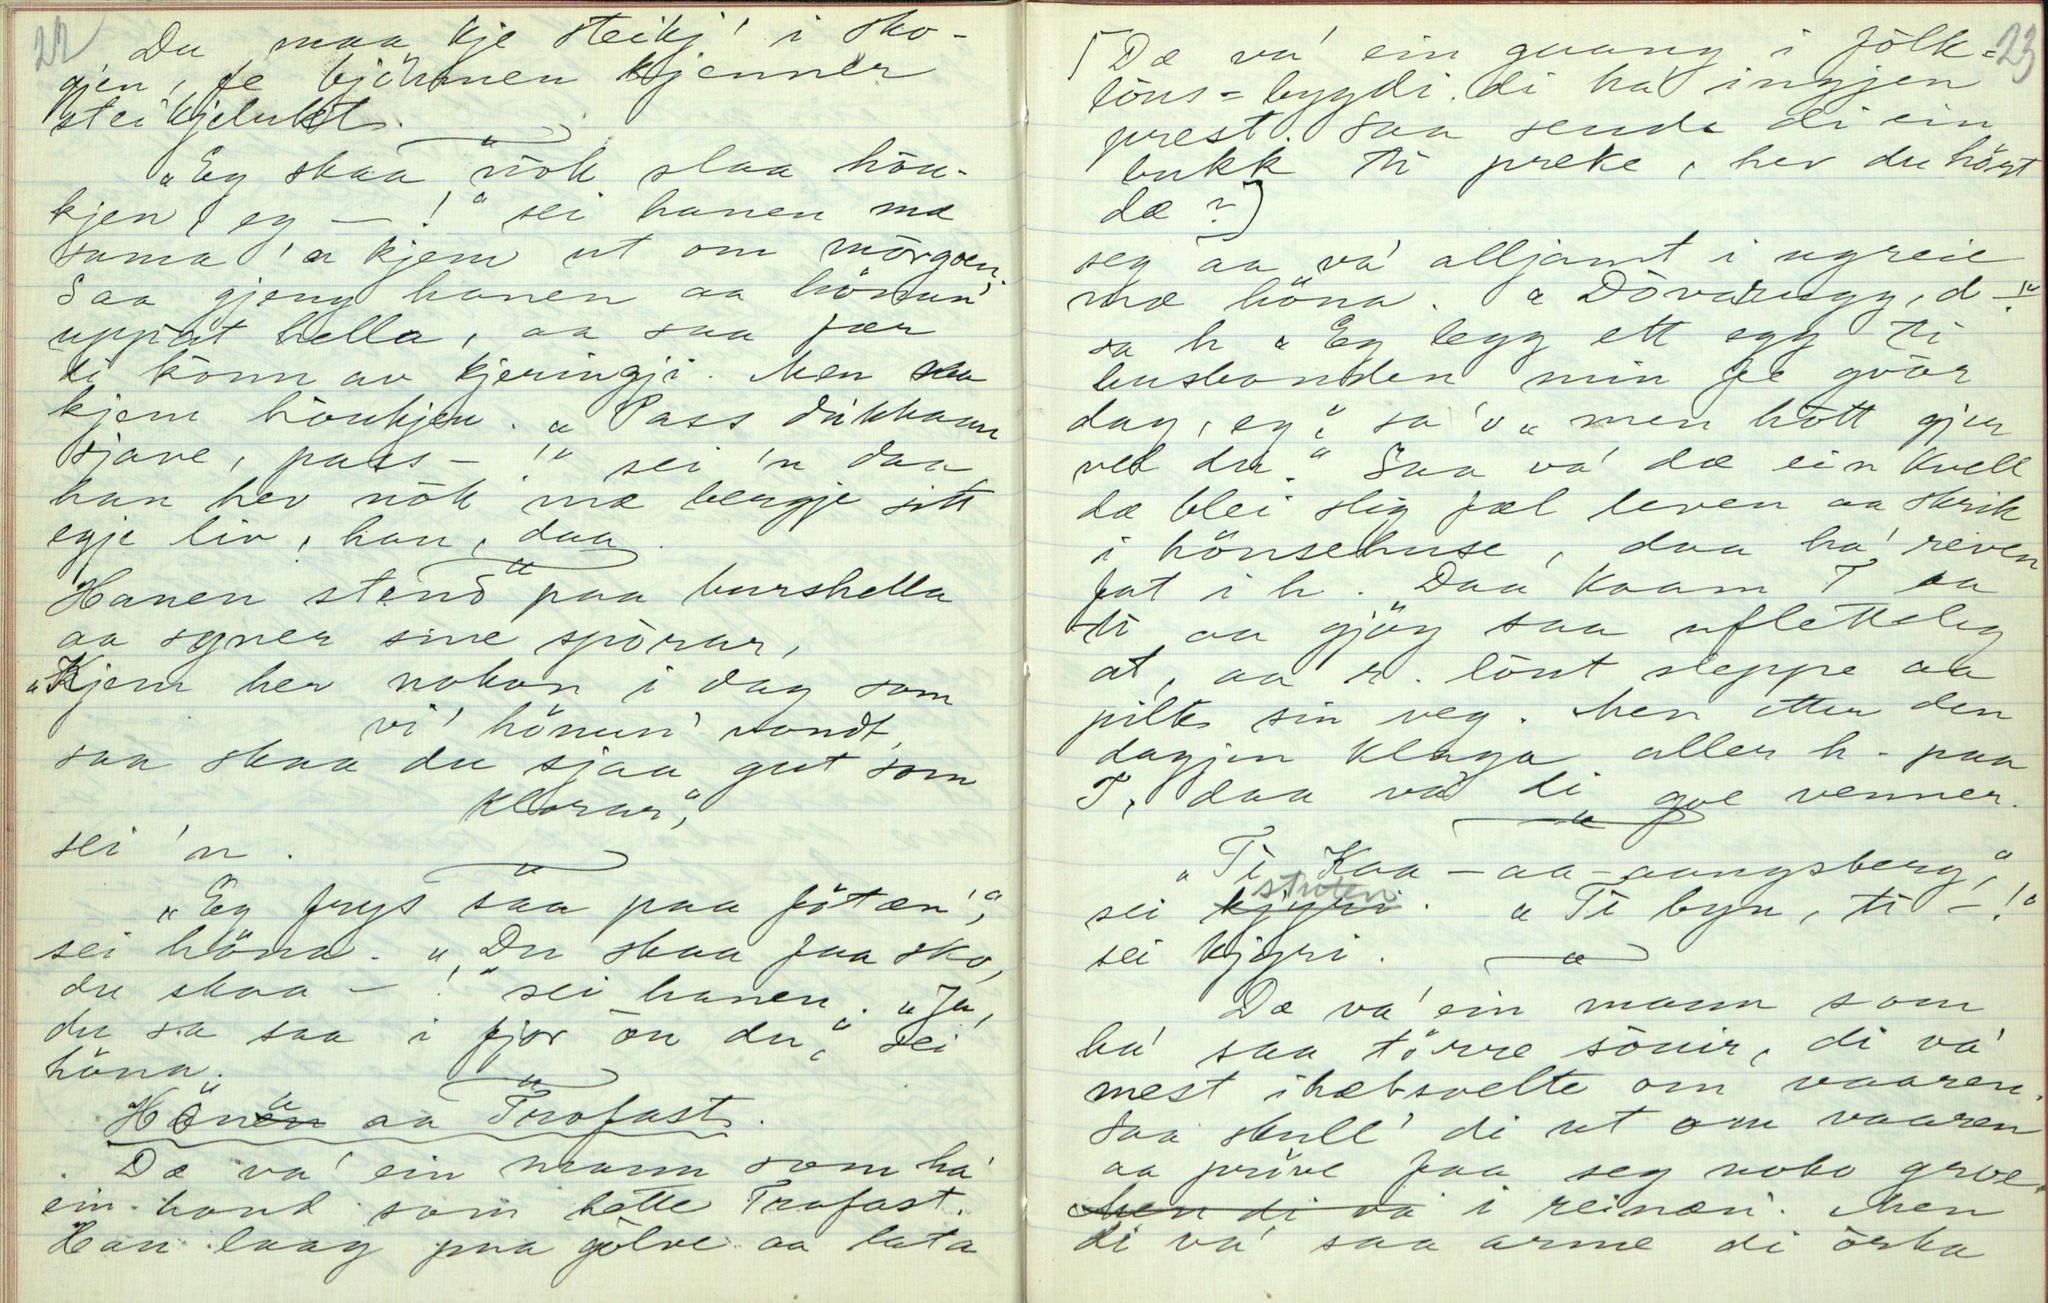 22
Du maa kje steikj' i sko-
gjen, fe bjönnen kjenner
steikjelukt.
"Eg skaa nok slaa höu-
kjen, eg — !" sei hanen mæ
sama 'n kjem ut om mörgoen,
Saa gjeng hanen aa hönun'
uppat hella, aa saa fær
di könn av kjeringji. Men saa
kjem höukjen. "Pass dikkann
sjave, pass — !" sei 'n daa
han hev nok mæ bergje sitt
egje liv, han, daa.
Hanen stend paa burshella
aa syner sine spörar,
"Kjem her nokon i dag som
vi' hönun' vondt,
saa skaa du sjaa, gut som
klorar,"
sei 'n.
"Eg frys saa paa fötæn',"
sei höna. "Du skaa faa sko,
du skaa — !" sei hanen. "Ja,
du sa saa i fjor ön du," sei
höna.
Höna aa Trofast.
Dæ va' ein mann som ha'
ein hond som hette Trofast.
Han laag paa gölve aa lata
23
[Dæ va' ein gaang i fölk-
löns-bygdi. di ha' ingjen
prest. Saa sende di ein
bukk ti preke, hev du hört
dæ?]
seg aa va' alljamt i ugreie
mæ höna. "Dövarugg, d —!"
sa h "Eg legg ett egg ti
husbonden min fe gvör
dag, eg," sa 'o "men hött gjer
vel du." Saa va' dæ ein kvell
dæ blei slig fæl leven aa skrik
i hönsehuse, daa ha' reven
fat i h. Daa kaam T aa
ti aa gjög saa ufletteleg
at, aa r. lönt sleppe aa
pilte sin veg. Men etter den
dagjen klaga aller h. paa
T, daa va' di goe venner.
"Ti Kaa—aa—aangsberg,"
sei studen. "Ti byn, ti —!"
sei kjyri.
Dæ va' ein mann som
ha' saa törre sönir, di va'
mest ihælsvelte om vaaren.
Saa skull' di ut om vaaren
aa pröve faa seg noko groe.
Men di va' i reinæn. Men
di va' saa arme di örka